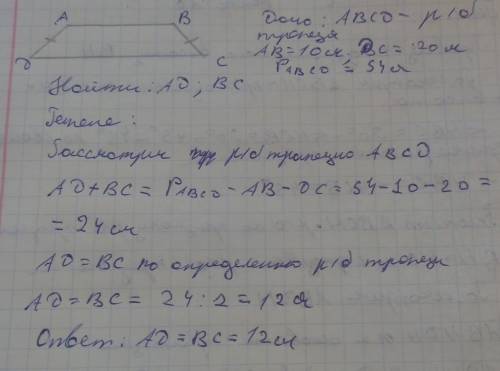 A B
D C
Дано: ABCD - р/б
трапеция
AB=10см. DC=20см
PABCD = 54см
Найти: AD; BC
Решение:
Рассмотрим р/б трапецию ABCD
AD+BC= PABCD - AB - DC = 54-10-20 =
= 24см
AD = BC по определению р/б трапеци
AD = BC = 24 : 2 = 12см
Ответ: AD = BC = 12см